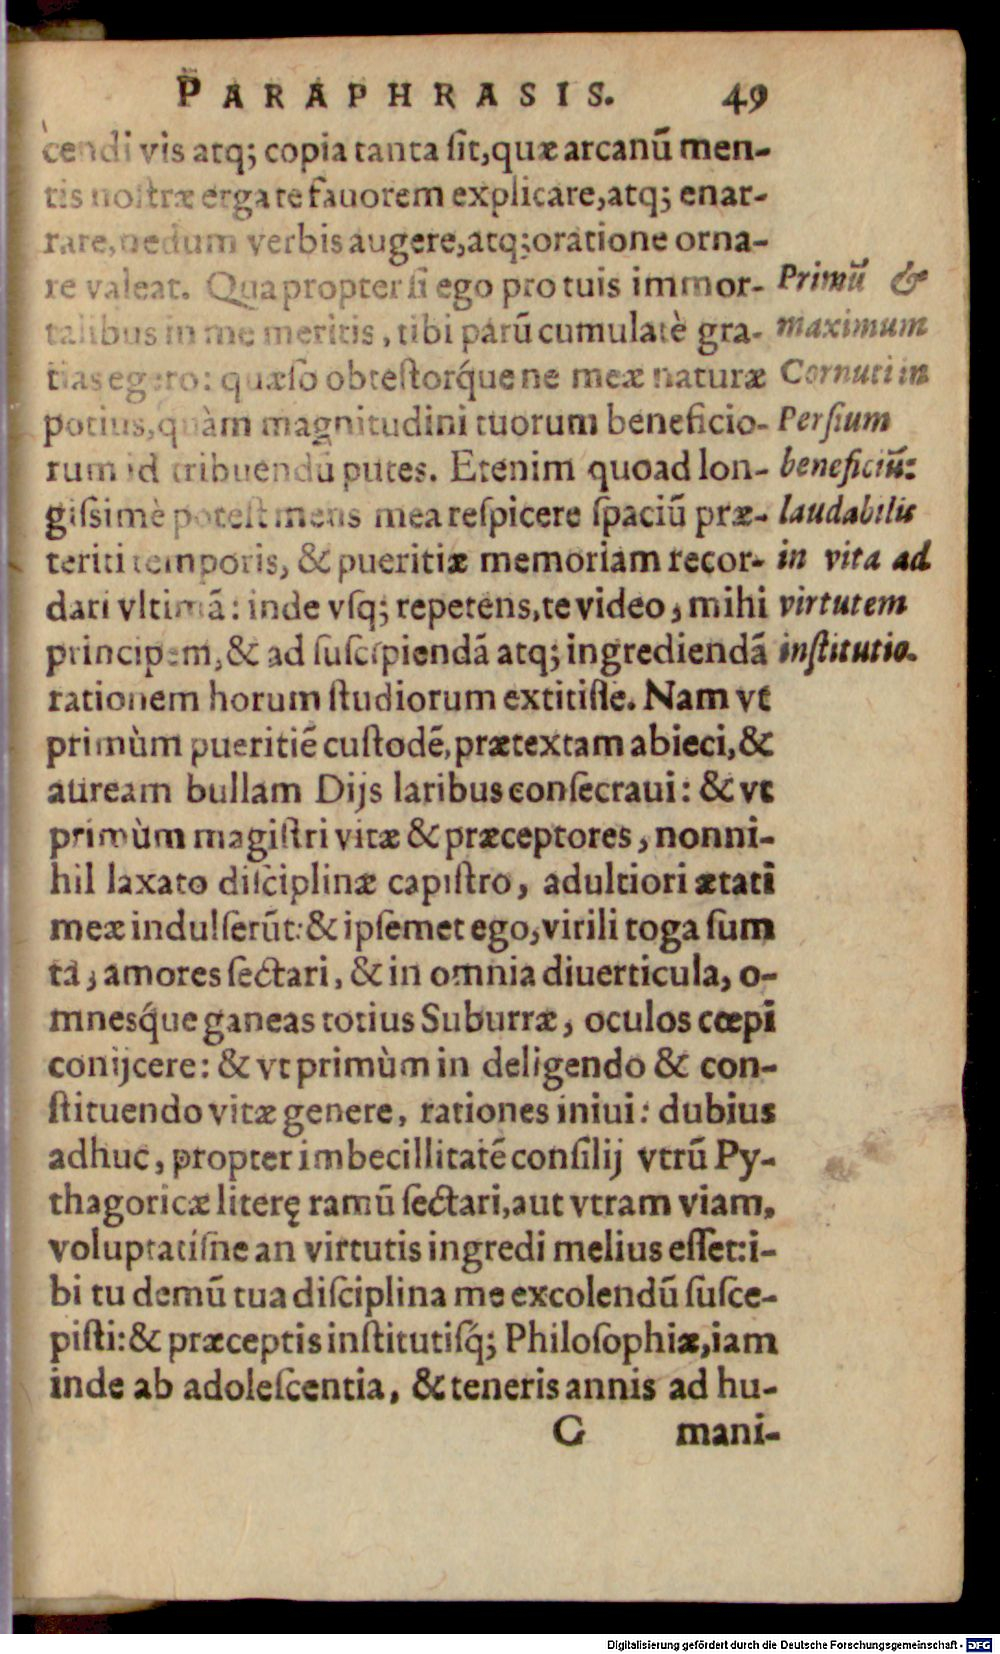 PARAPHRASIS. 49
cendi vis atq; copia tanta ſit,quæ arcanū men-
tis noſtræ erga te fauorem explicare,atq; enar-
rare,nedum verbis augere,atq;oratione orna-
re valeat. Quapropter ſi ego pro tuis immor-
talibus in me meritis, tibi parū cumulatè gra-
tias egero: quæſo obteſtorq́ue ne meæ naturæ
potius,quàm magnitudini tuorum beneficio-
rum id tribuendū putes. Etenim quoad lon-
giſsimè poteſt mens mea reſpicere ſpaciū præ-
teriti temporis, & pueritiæ memoriam recor-
dari vltimā: inde vſq; repetens,te video, mihi
principem,& ad ſuſcipiendā atq; ingrediendā
rationem horum ſtudiorum extitiſſe. Nam vt
primùm pueritiē cuſtodē,prætextam abieci,&
auream bullam Dijs laribus conſecraui: & vt
primùm magiſtri vitæ & præceptores, nonni-
hil laxato diſciplinæ capiſtro, adultiori ætati
meæ indulſerūt: & ipſemet ego,virili toga ſum
ta, amores ſectari, & in omnia diuerticula, o-
mneſq́ue ganeas totius Suburræ, oculos cœpi
conijcere: & vt primùm in deligendo & con-
ſtituendo vitæ genere, rationes iniui: dubius
adhuc, propter imbecillitatē conſilij vtrū Py-
thagoricæ literę ramū ſectari,aut vtram viam,
voluptatiſne an virtutis ingredi melius eſſet:i-
bi tu demū tua diſciplina me excolendū ſuſce-
piſti:& præceptis inſtitutiſq́; Philoſophiæ,iam
inde ab adoleſcentia, & teneris annis ad hu-
G mani-
Primū &
maximum
Cornuti in
Perſium
beneficiū:
laudabilis
in vita ad
virtutem
inſtitutio.
Digitalisierung gefördert durch die Deutsche Forschungsgemeinschaft - DFG